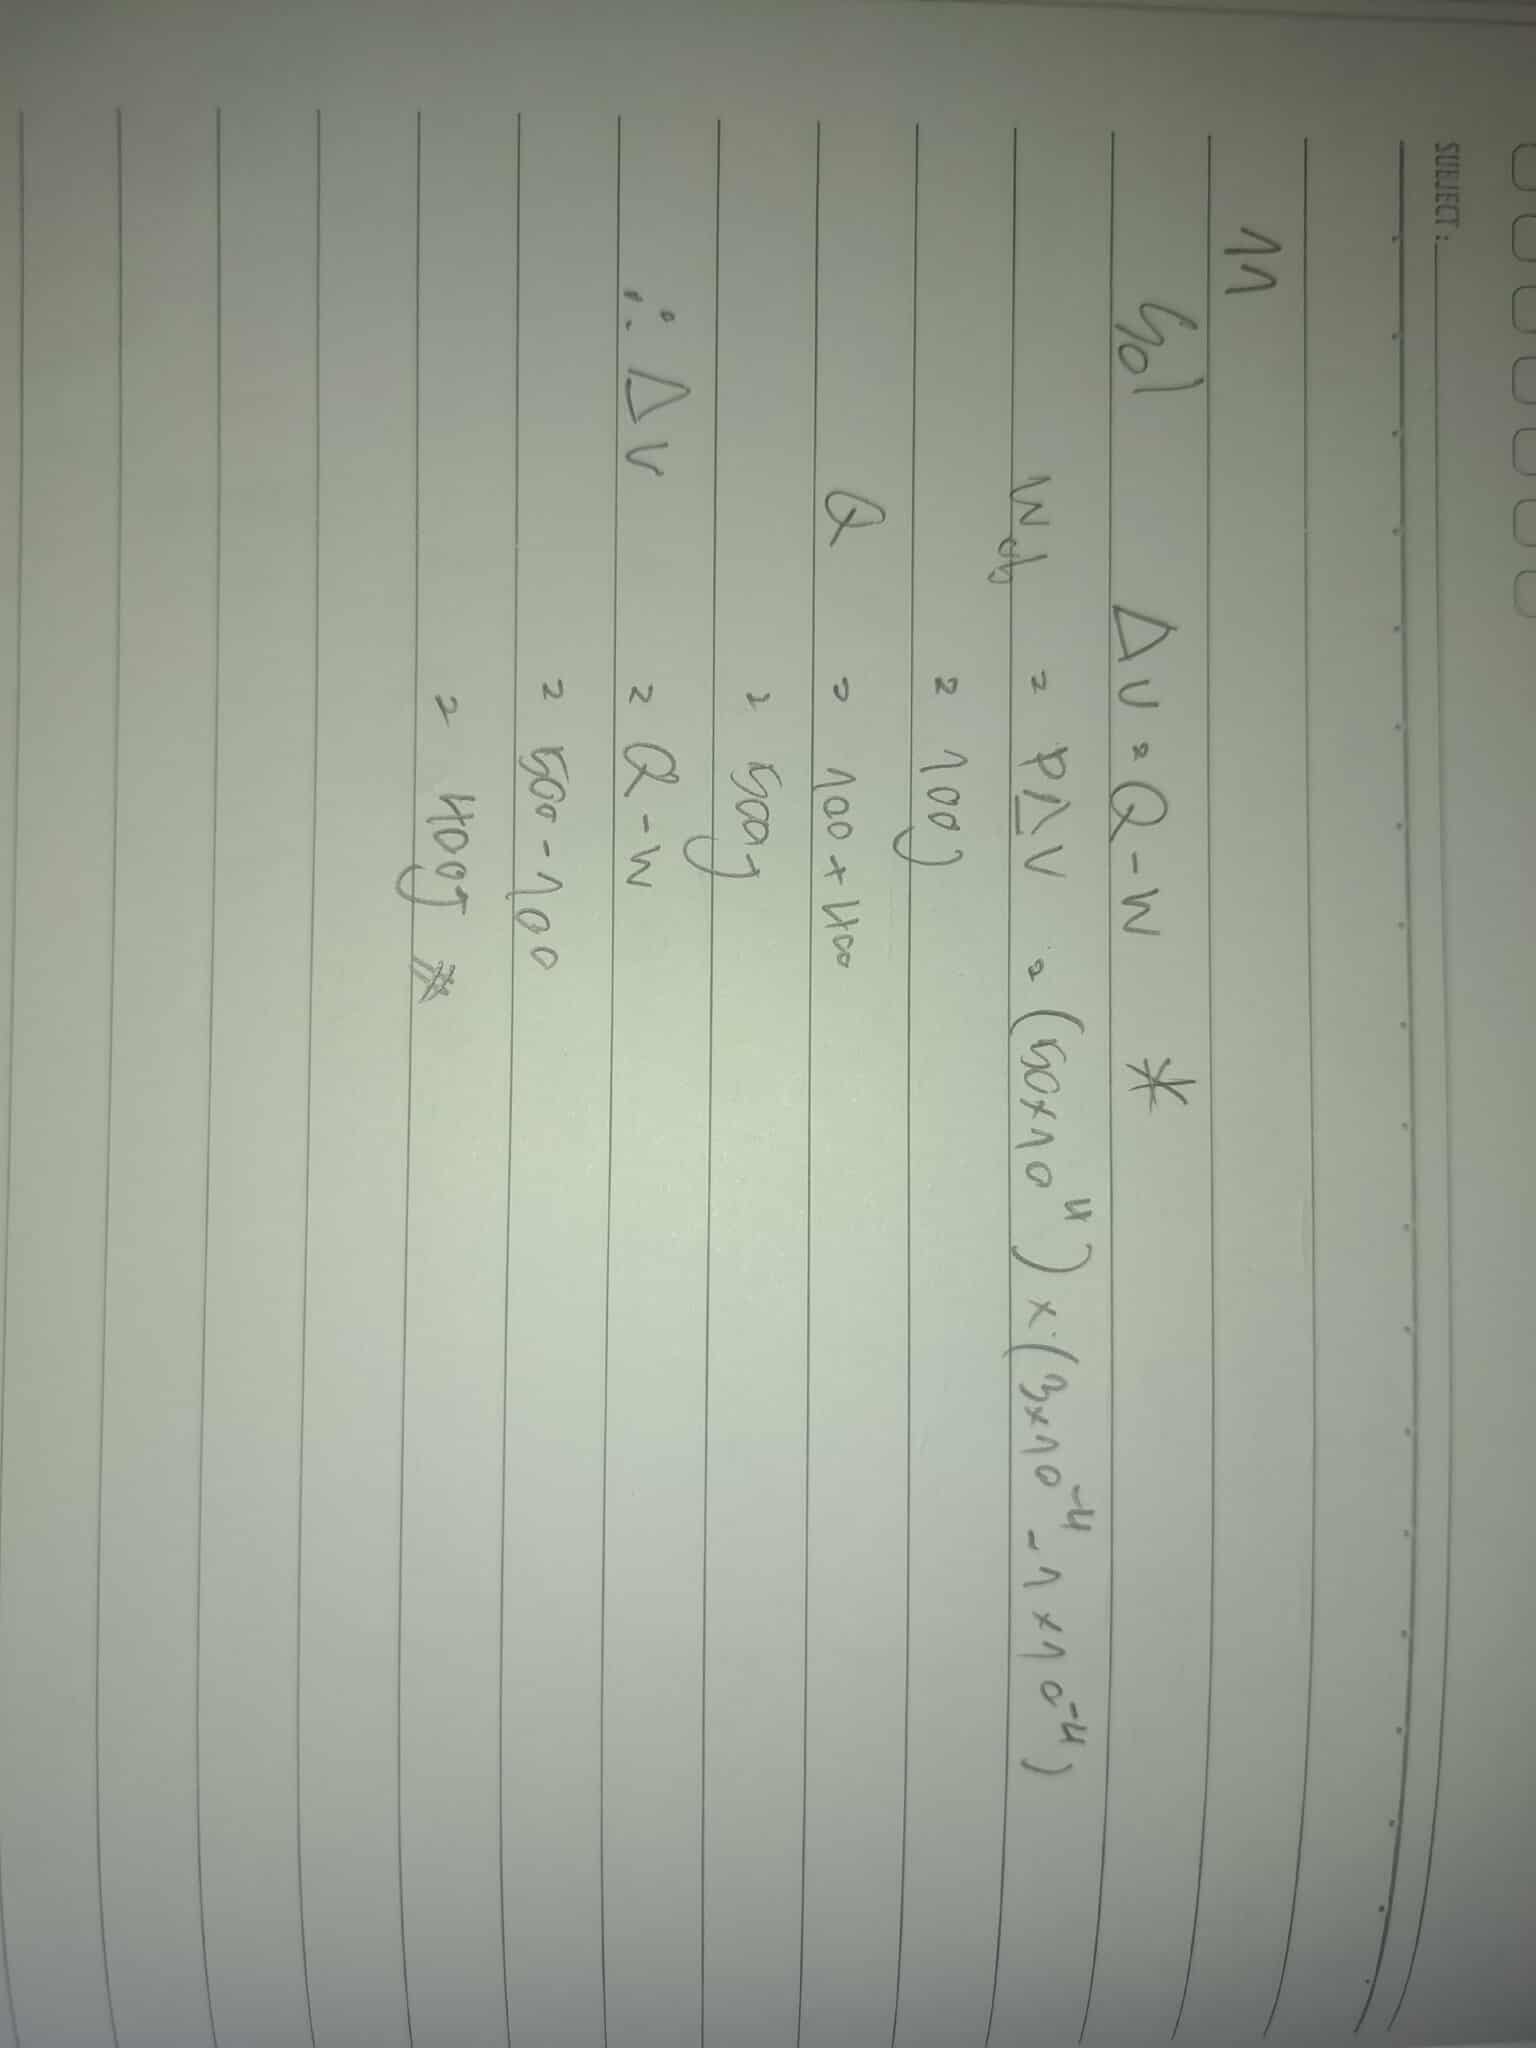 SUBJECT :
11
Sol ΔU = Q - W *
Wab = PΔV = (50×10⁴) × (3×10⁻⁴ - 1×10⁻⁴)
= 100J
Q = 100 + 400
= 500J
∴ ΔU = Q - W
= 500 - 100
= 400J #